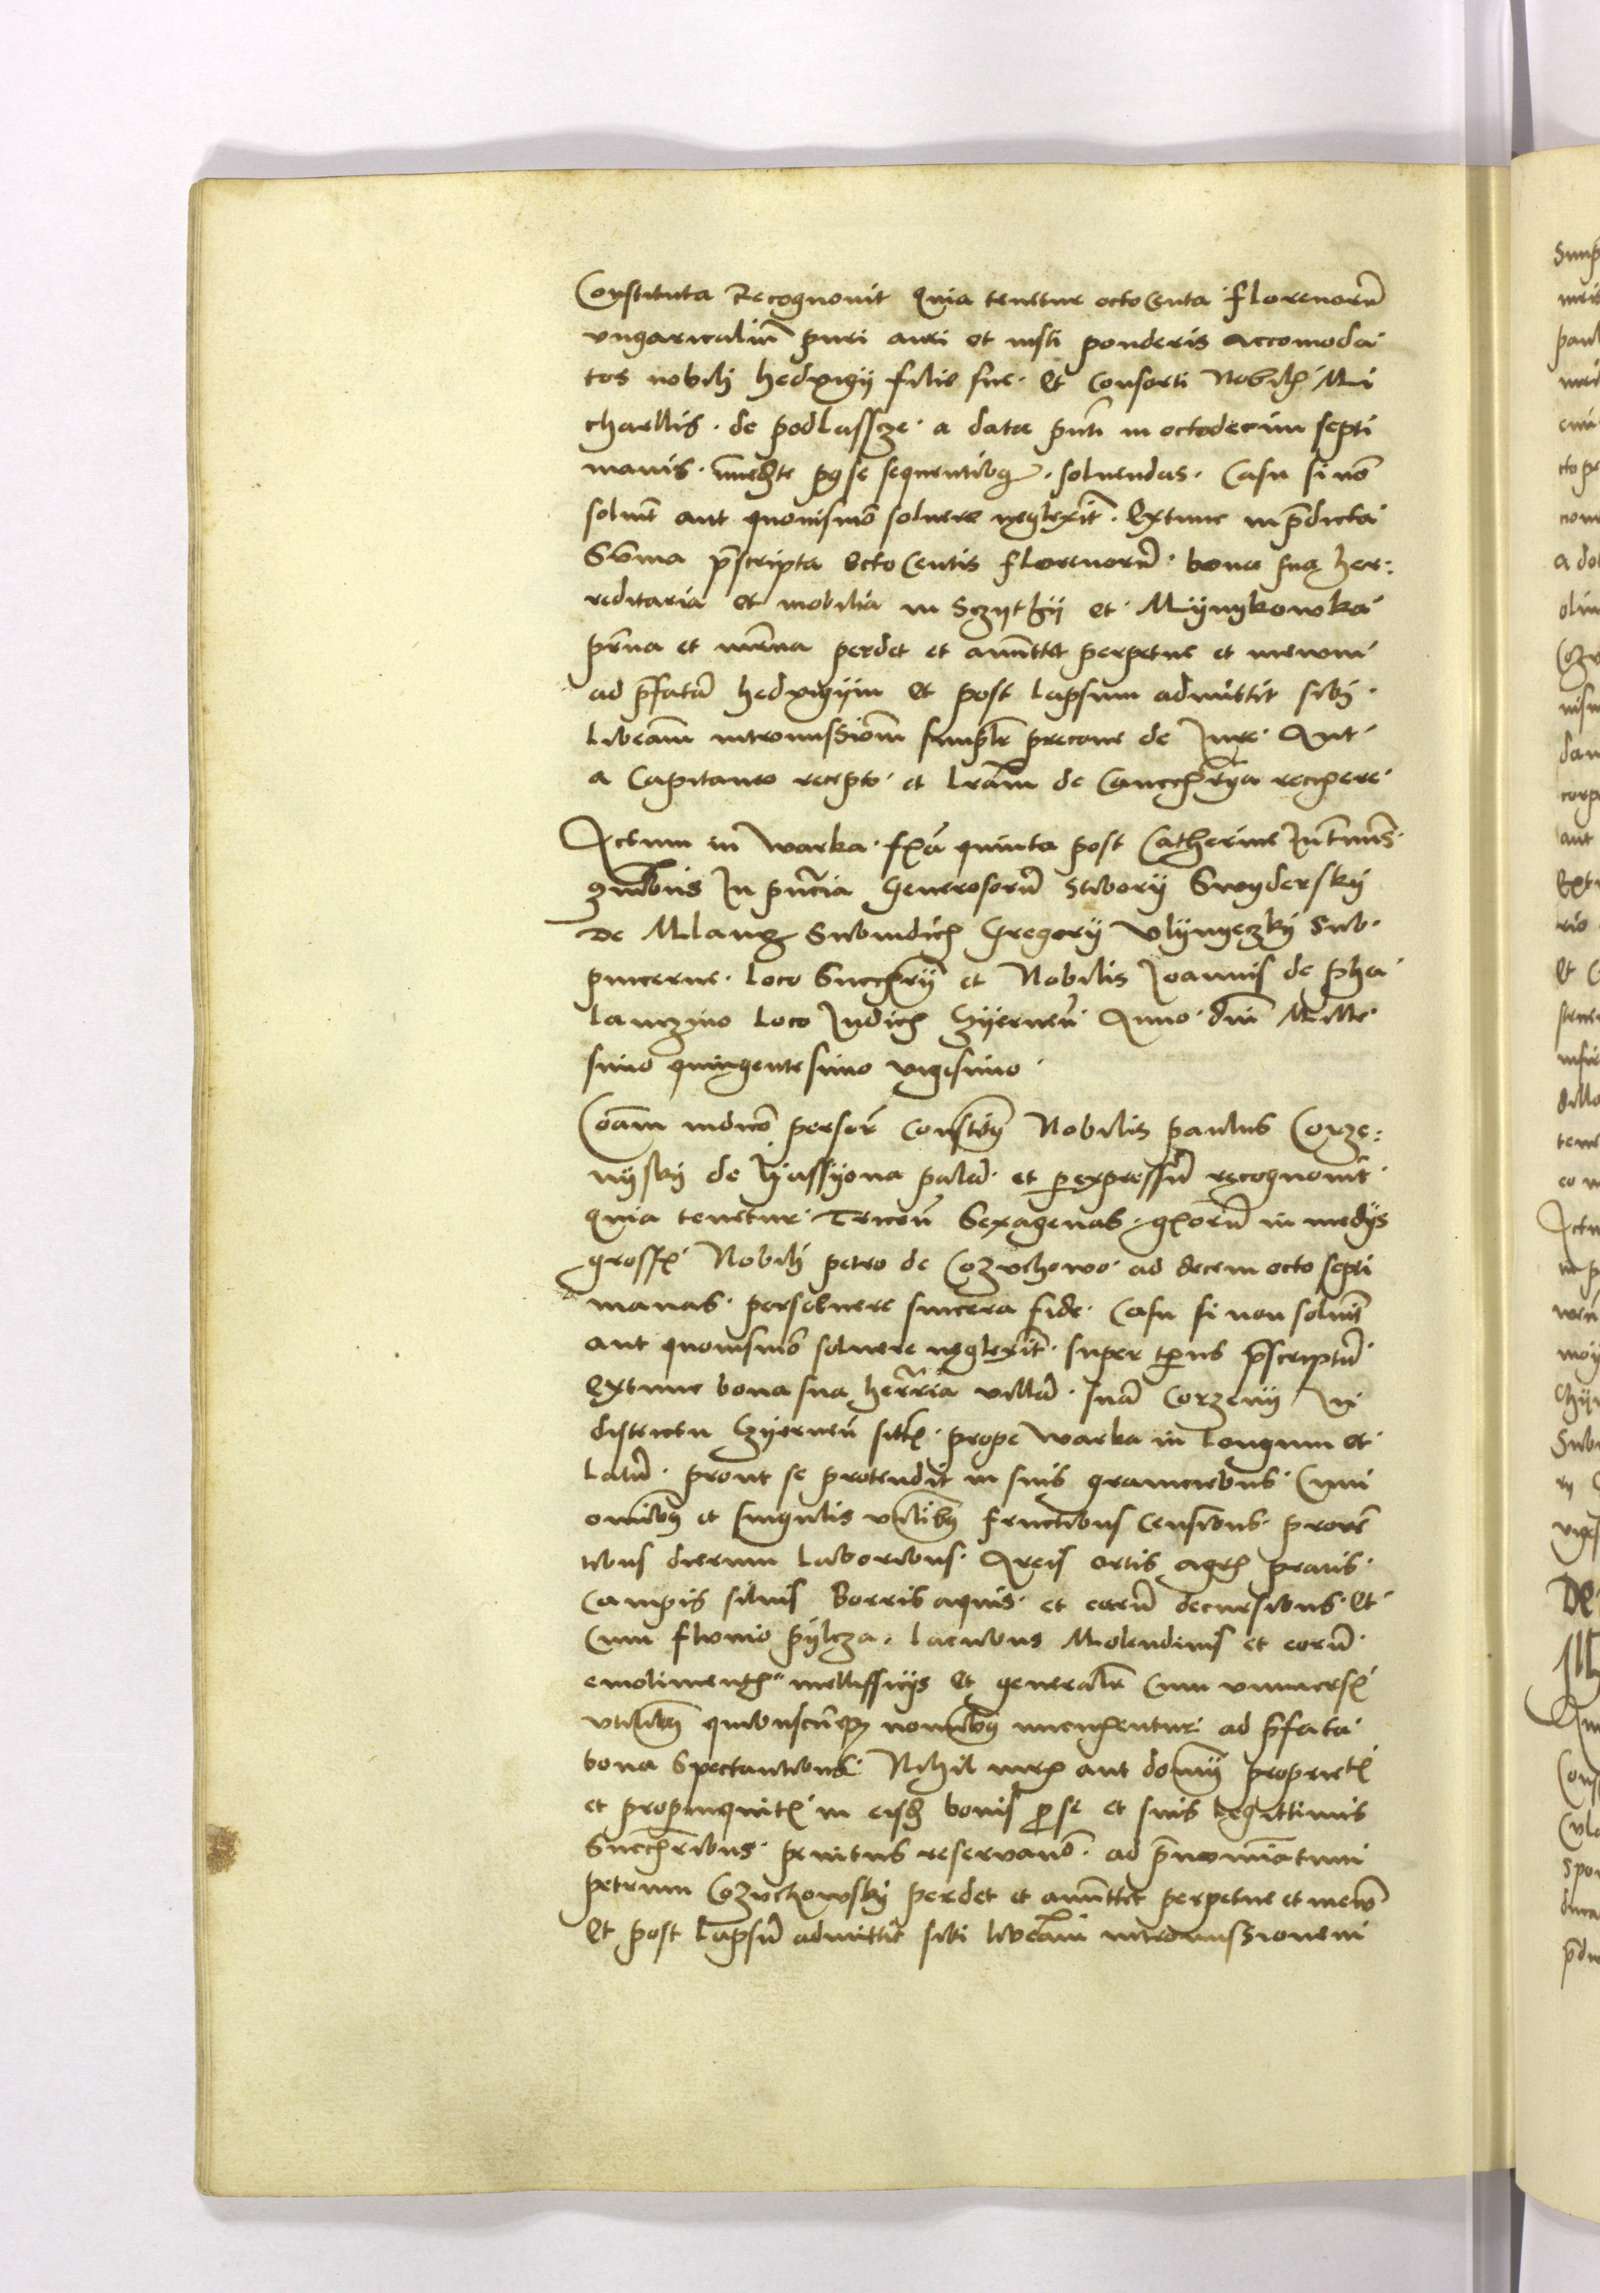 Constituta Recognovit Quia tenetur octoCenta florenorũ
vngaricaliũ puri auri et iusti ponderis accomoda
tos nobili hedvigij filie sue · Et Consorti Nobilis Mi
chaellis · de podlassze · a data pñti in octodecim septi
manis · se sequentibus · soluendas · Casu si nõ
soluit aut quouismõ soluere neglexit · Extunc in p̃dicta
Sũma p̃scripta octo Centis florenorũ · bona sua her:
reditaria et mobilia in Sczythy et · Mijnykowka
perdet et amittet perpetue et in ewm
ad p̃fatã hedvigijm Et post Lapsum admittit sibi ·
Liberam intromissionem simplr̃ precone de Jure · Aut ·
a Capitaneo recepto · et lrãm de Canccria recipere ·
Actum in warka · fr̃ia quinta post Catherine
In pñcia Generosorũ Stiborij Swyderskij
De Mlanz Subiudicis Gregorij Vlijnyeczkij Sub ·
pincerne · loco Succrij et Nobilis Joannis de pha
lanczino loco Judicis Czijernen̄ Anno · dni Mille
simo quingentesimo vigesimo ·
Corãm iudicio Constitũ Nobilis paulus Corze:
nijskij de palã · et p expressũ recognouit ·
Quia tenetur · Tricen̄ Sexagenas · grorũ in medijs
gross · Nobili petro de Cozuchowo · ad decem octo septi
manas · persoluere sincera fide · Casu si non soluit
aut quouismõ soluere neglexit · super p̃scriptũ ·
Extunc bona sua her̃ria villã · suã Corzenij In
districtu Czijernen̄ sitã · prope warka in longum et ·
latũ · prout se protendit in suis graniciebus · Cum
omnibus et singulis vtilibus fructibus Censibus · proven
tibus dierum laboribus · Areis ortis agris pratis ·
Campis siluis Borris aquis · et earũ decursibus · Et ·
Cum fluuio pylcza · lacubus Molendinis et eorũ ·
emolimentis mellificijs Et generalr̃ Cum vniuersis
vtilibus quibuscũq nomibus nuncupentur ad p̃fata ·
bona Spectantibus · Nihil iuris aut dominij proprietatis
et propinquitatis in eisdem bonis p se et suis legittimis
Succribus · penitus reservanõ · ad p̃nominatum
petrum Cozuchowskij perdet et amittit perpetue et in ew̃
Et post lapsũ admittit sibi liberam intromissionem